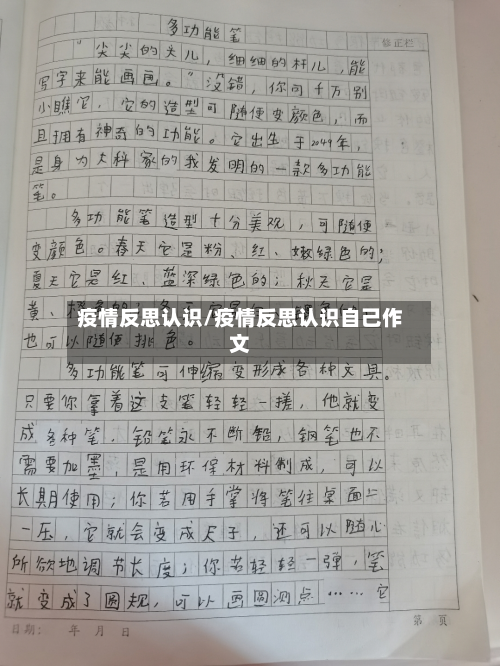 多功能笔
修正栏
"尖尖的头儿，细细的杆儿，能
写字来能画画。"没错，你可千万别
小瞧它，它的造型可随便变颜色，而
且拥有神奇的功能。它出生于2049年，
是身为大科家的我发明的一款多功能
笔。
多功能笔造型十分美观，可随便
变颜色。春天它是粉、红、嫩绿色的；
夏天它是红、蓝深绿色的；秋天它是
黄、橙色的；冬
疫情反思认识/疫情反思认识自己作
文
也可以随便挑色。
多功能笔可伸缩变形成各种文具。
只要你拿着这支笔轻轻一搓，他就变
成各种笔，铅笔永不断铅，钢笔也不
需要加墨，是用环保材料制成，可以
长期使用；你若用手掌将笔往桌面上
一压，它就会变成尺子，还可以随心
所欲地调节长度；你若轻轻一弹，笔
就变成了圆规，可以画圆测点……它
日期： 年 月 日
第 页